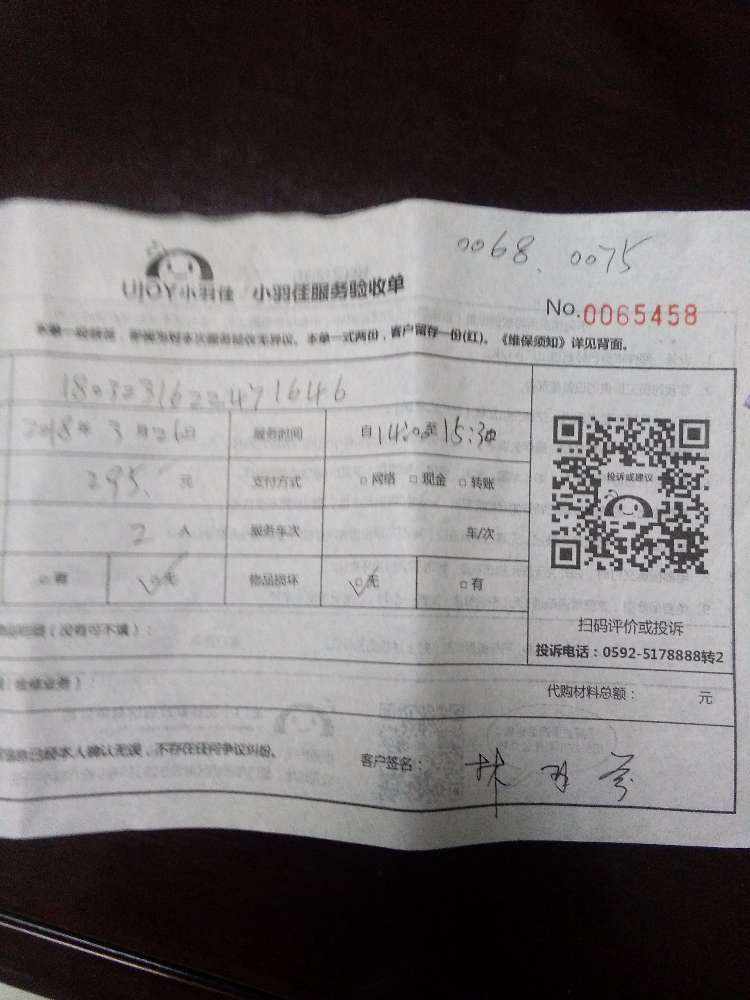 0068. 0075
UJOY小羽佳 小羽佳服务验收单
No.0065458
本单一式两份，客户留存一份(红)。《维保须知》详见背面。
180323162247 1646
2018年3月26日 服务时间 自14:00至15:30
295. 元 支付方式 □网络 □现金 □转账
投诉或建议
2人 服务车次 车/次
□有 □无 物品损坏 □无 □有
(没有可不填)：
扫码评价或投诉
投诉电话：0592-5178888转2
代购材料总额： 元
已经本人确认无误，不存在任何争议纠纷。 客户签名：林